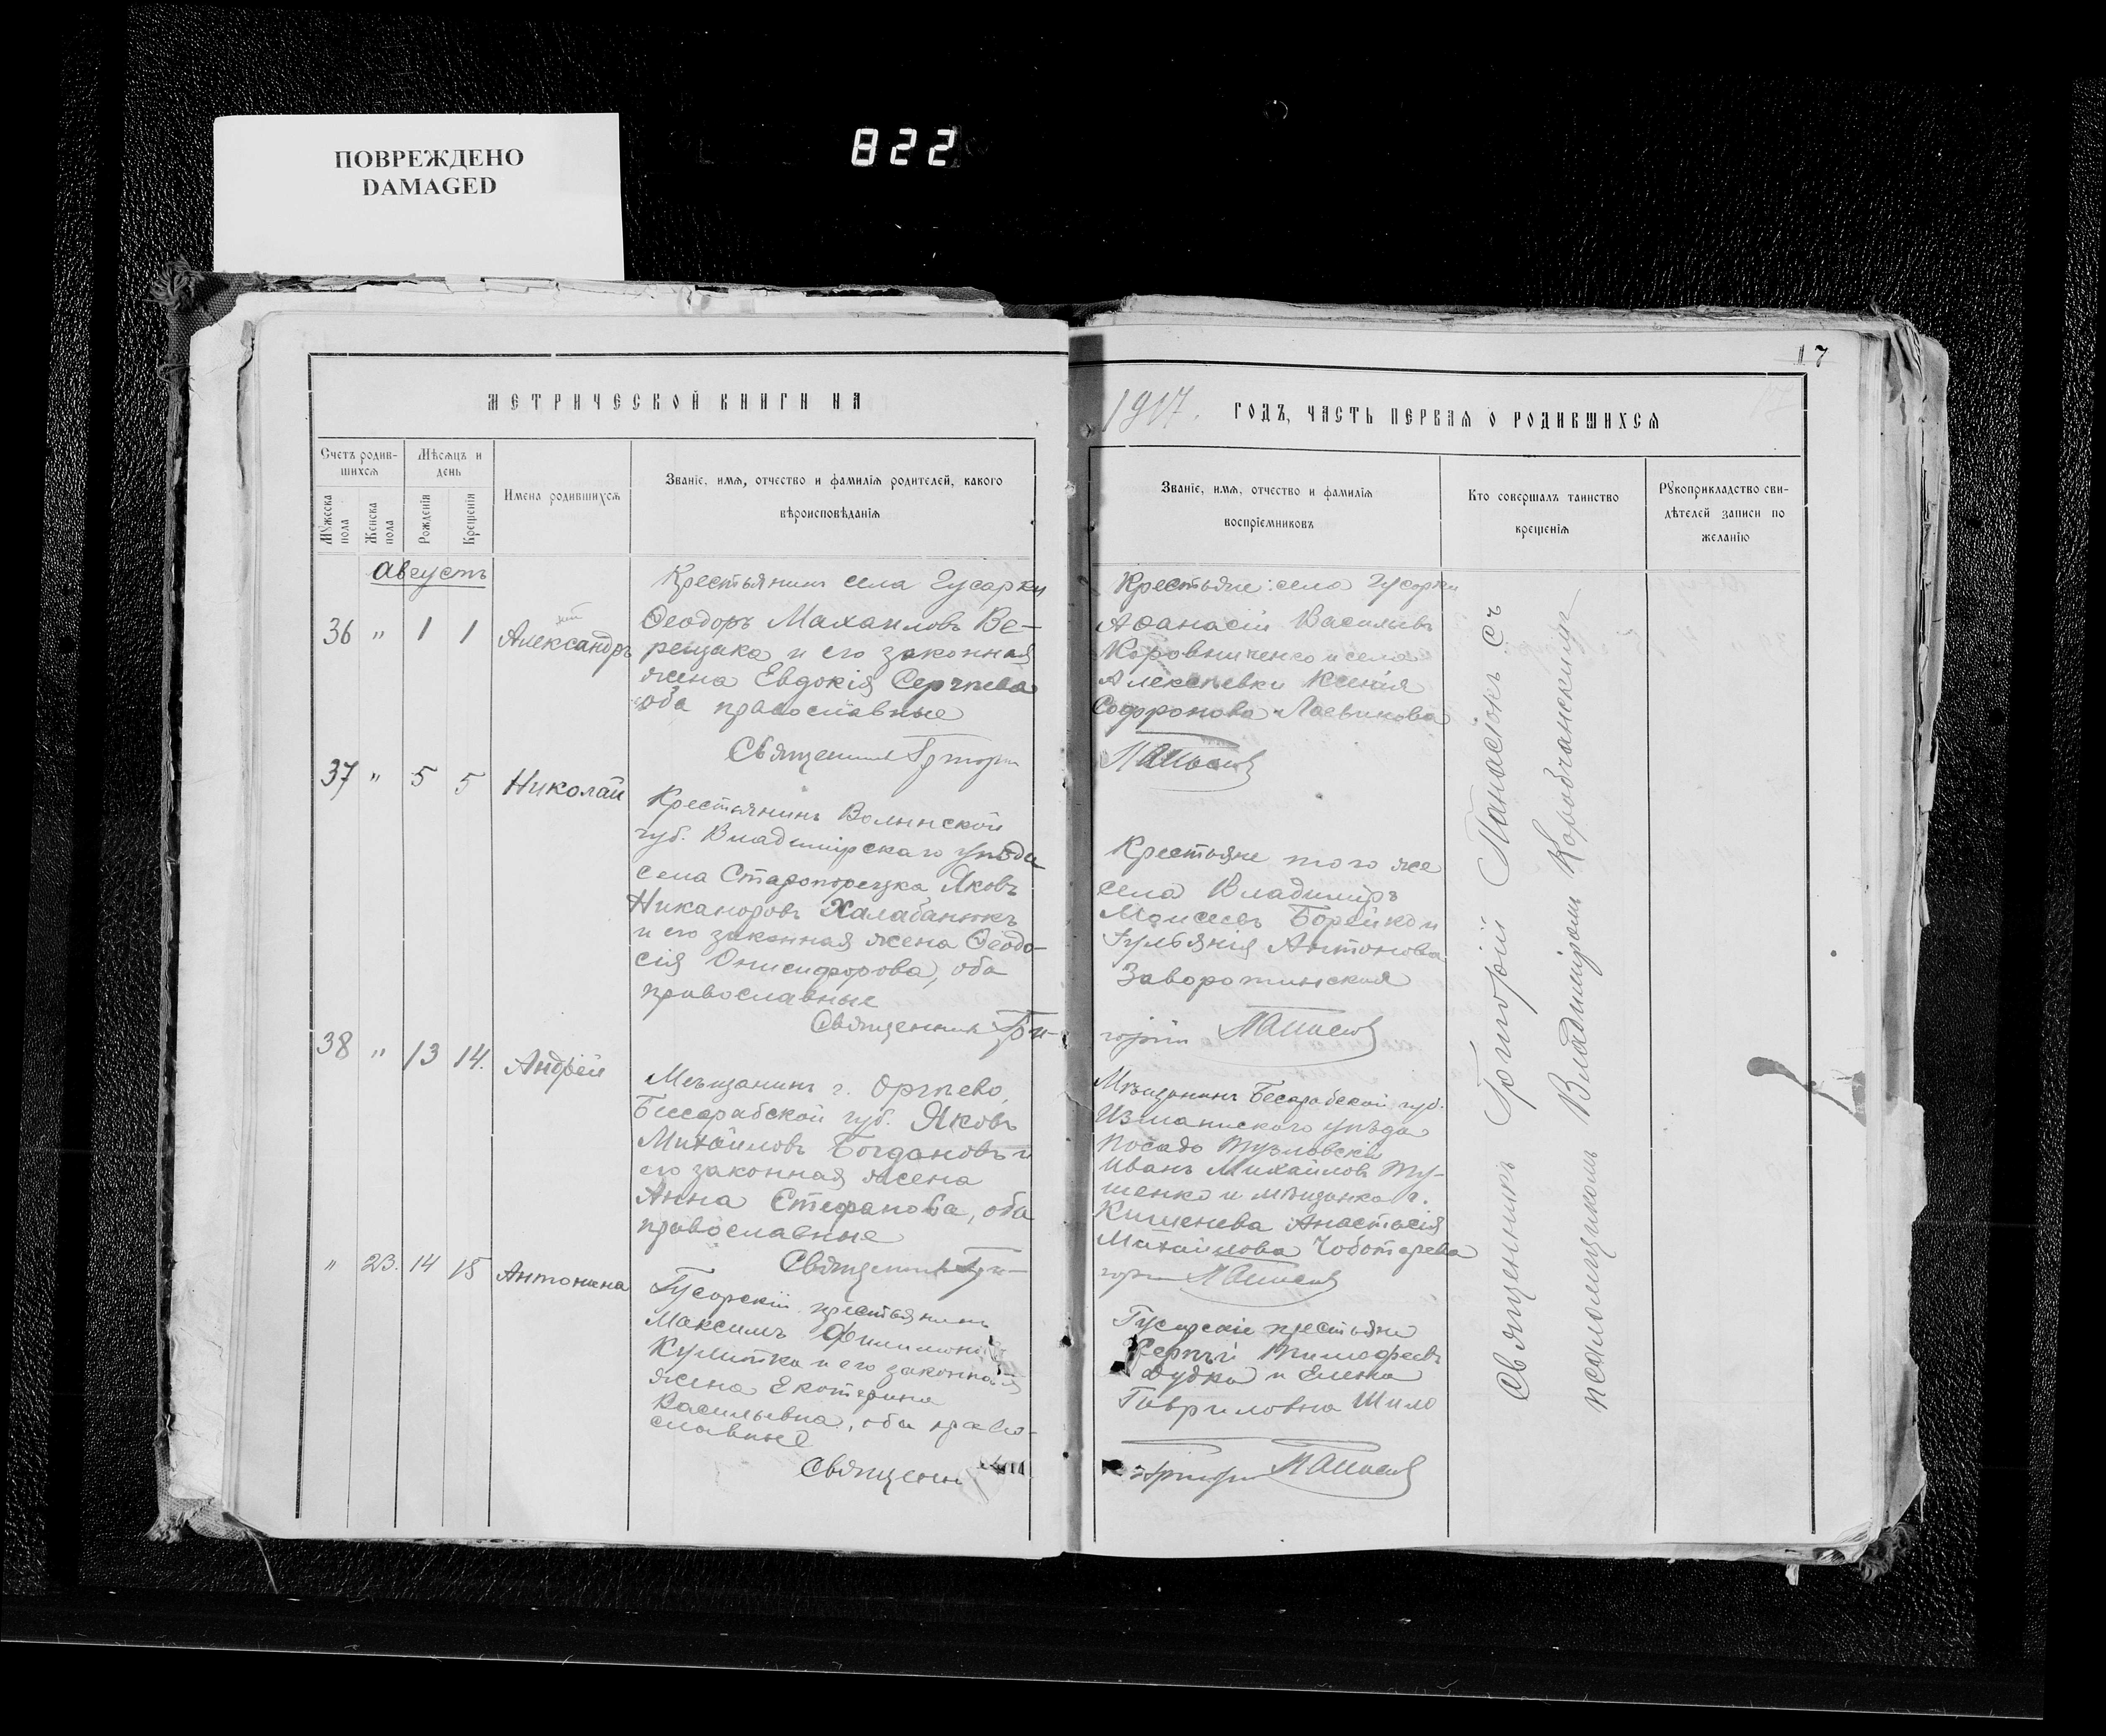 ПОВРЕЖДЕНО
DAMAGED
822
17
МЕТРИЧЕСКОЙ КНИГИ НА
1917. ГОДЪ, ЧАСТЬ ПЕРВАЯ О РОДИВШИХСЯ
Счетъ родив-
шихся
Мужеска
пола
Женска
пола
Мѣсяцъ и
день
Рожденія
Крещенія
Имена родившихся
Званіе, имя, отчество и фамилія родителей, какого
вѣроисповѣданія
Званіе, имя, отчество и фамилія
воспріемниковъ
Кто совершалъ таинство
крещенія
Рукоприкладство сви-
дѣтелей записи по
желанію
Августъ
36 " 1 1 Александръ
Крестьянинъ села Гусарки
Ѳеодоръ Махаиловъ Ве-
рещака и его законная
жена Евдокія Сергѣева
оба православные
Священникъ Григорій
Крестьяне: села Гусарки
Аѳанасій Васильевъ
Коровниченко и села
Алексѣевки Ксенія
Софронова
37 " 5 5 Николай
Крестьянинъ Волынской
губ. Владимірскаго уѣзда
села Старопорецка Яковъ
Никаноровъ Халабанюкъ
и его законная жена Ѳеодо-
сія Онисифорова, оба
православные
Священникъ Гри-
Крестьяне того же
села Владиміръ
Моисеевъ Борейко и
Іульянія Антонова
Заворотинская
горій
38 " 13 14. Андрей
Мѣщанинъ г. Оргѣева,
Бесарабской губ. Яковъ
Михайловъ Богдановъ и
его законная жена
Анна Стефанова, оба
православные
Священникъ Гри-
Мѣщанинъ Бесарабской губ.
Измаилскаго уѣзда
посада Тузловскій
Иванъ Михайловъ Ту-
шенко и мѣщанка г.
Кишенева Анастасія
Михайлова Чоботарева
горій
" 23. 14 15 Антонина
Гусарскій крестьянинъ
Максимъ
и его законная
жена Екатерина
Васильевна, оба право-
славные
Священникъ
Гусарскіе крестьяне
Сергѣй Тимофеевъ
Дудка и Елена
Гавриловна Шило
Григорій
Священникъ Григорій Панасіокъ съ
псаломщикомъ Владиміромъ Коробчанскимъ